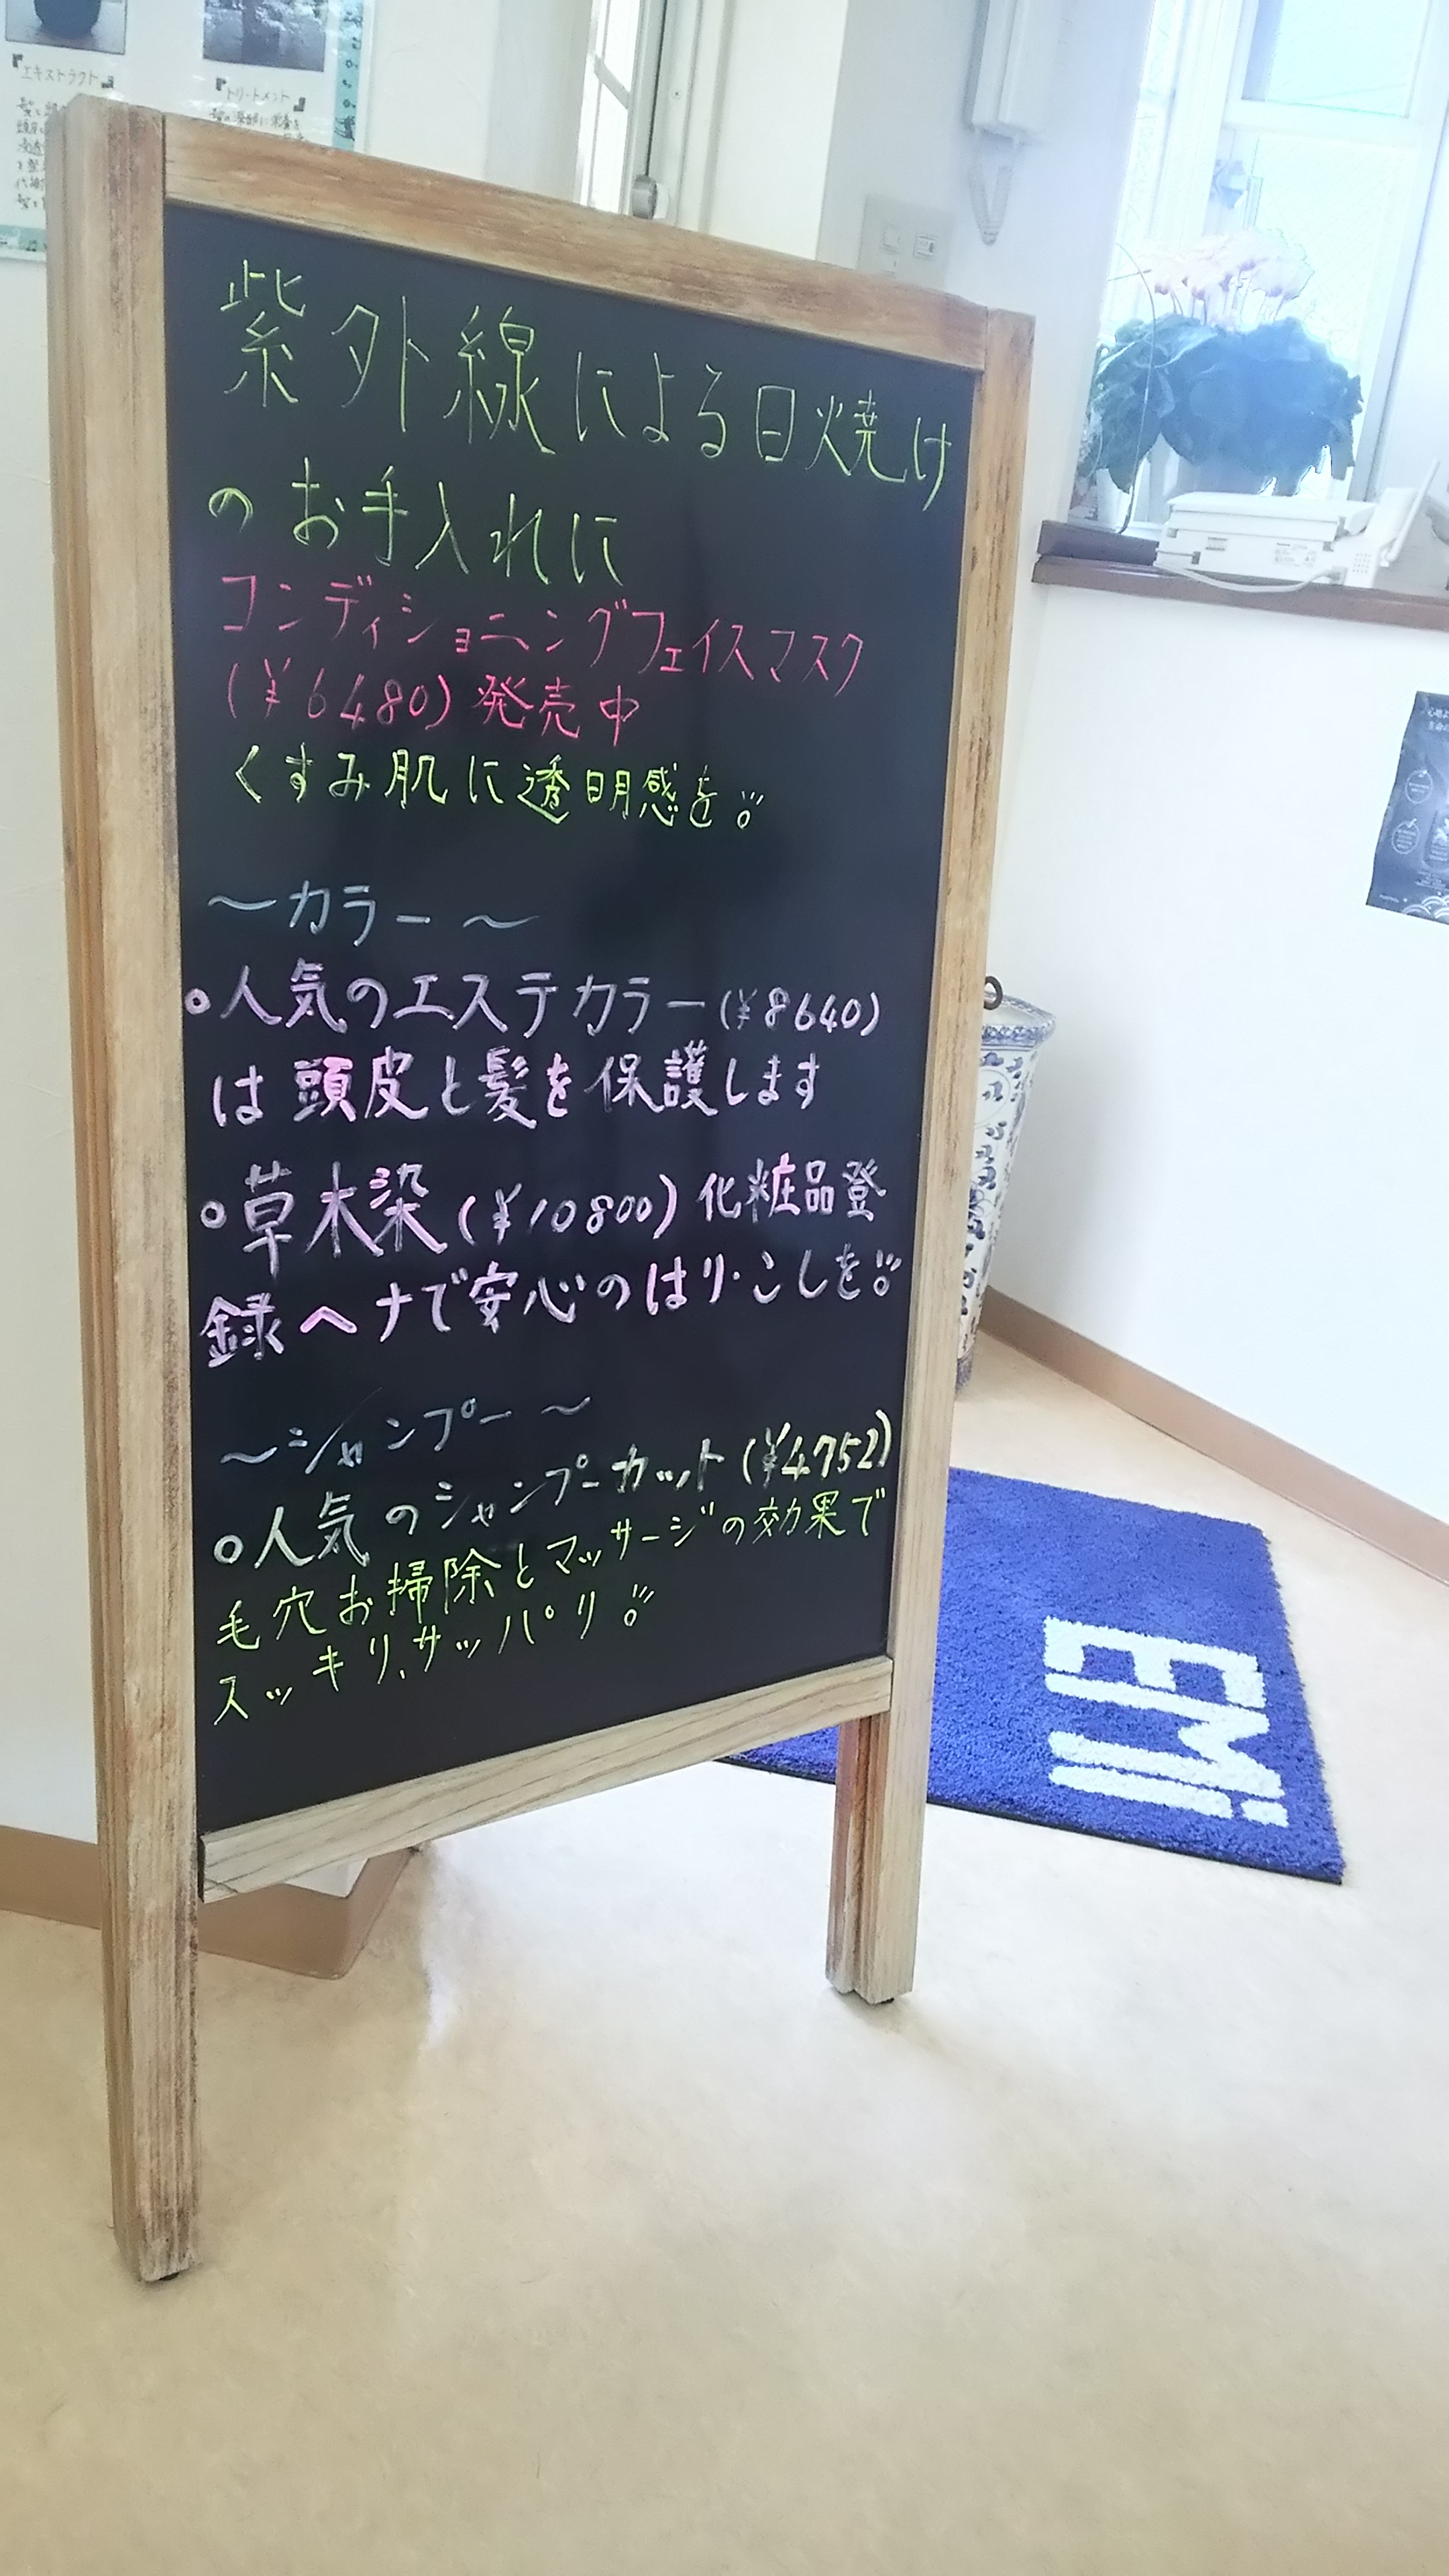 『エキストラクト』
『トリートメント』
紫外線による日焼け
のお手入れに
コンディショニングフェイスマスク
(¥6480)発売中
くすみ肌に透明感を
～カラー～
○人気のエステカラー(¥8640)
は頭皮と髪を保護します
○草木染(¥10800)化粧品登
録ヘナで安心のはり・こしを
～シャンプー～
○人気のシャンプーカット(¥4752)
毛穴お掃除とマッサージの効果で
スッキリ、サッパリ
EMi